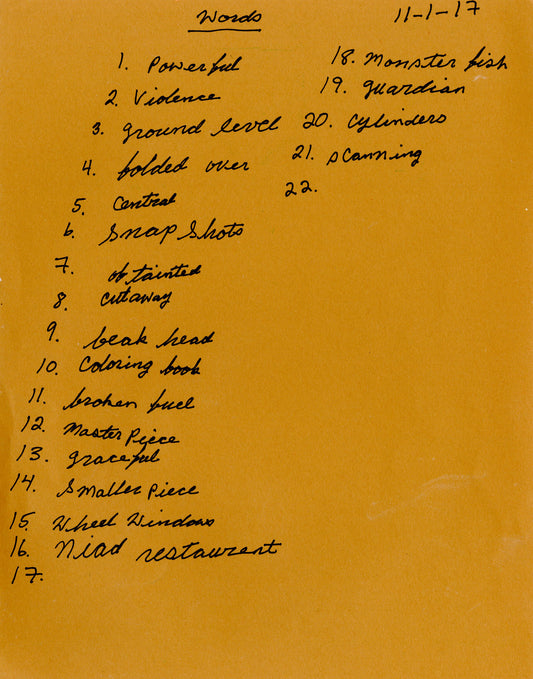 Words
11-1-17
1. Powerful
2. Violence
3. ground level
4. folded over
5. Central
6. Snap Shots
7. obtainted
8. cutaway
9. beak head
10. Coloring book
11. broken fuel
12. Master Piece
13. graceful
14. Smaller Piece
15. Wheel Windows
16. Niad restaurent
17.
18. Monster fish
19. guardian
20. cylinders
21. scanning
22.